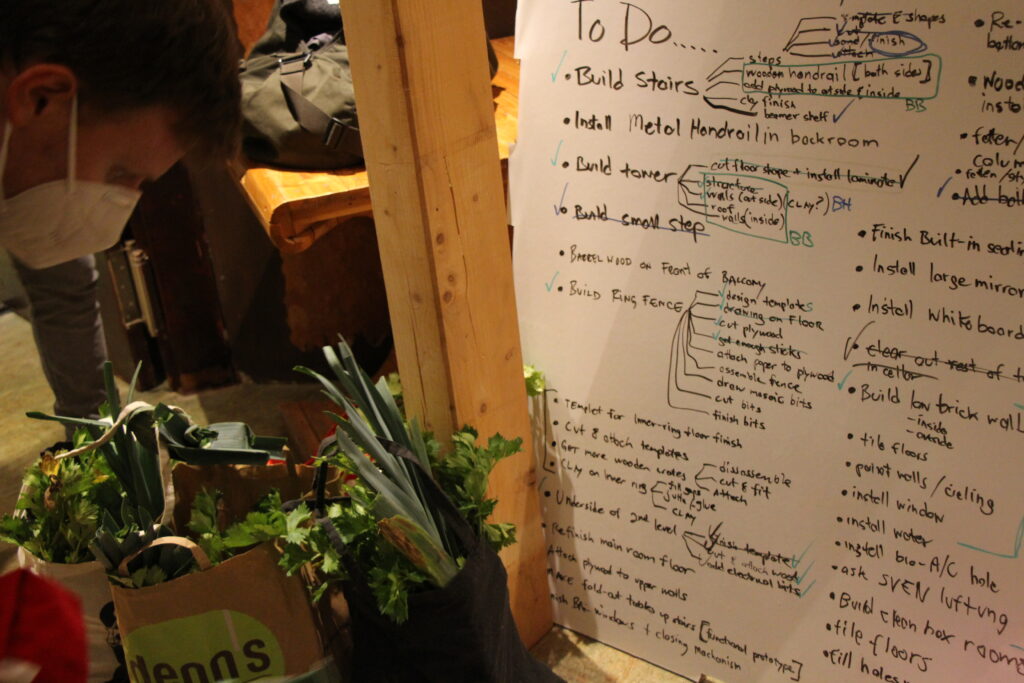 To Do.....
& shapes
finish
attach
• Build Stairs
steps
wooden handrail [both sides]
add plywood to outside & inside
BB
clay finish
beamer shelf
• Install Metal Handrail in backroom
• Build tower
cut floor shape + install laminate
structure
walls (outside) (CLAY?) BH
roof
walls (inside)
BB
• Build small step
• BARREL WOOD ON FRONT OF BALCONY
• BUILD RING FENCE
design templates
drawing on FLOOR
cut plywood
get enough sticks
attach paper to plywood
assemble fence
draw mosaic bits
cut bits
finish bits
• TEMPLET for inner-ring floor finish
• Cut & attach templates
• Get more wooden crates
disassemble
cut & fit
Attach
• CLAY on inner ring
fill gaps
jute/glue
CLAY
• Underside of 2nd level
finish template
cut & attach wood
add electrical bits
Refinish main room floor
Attach plywood to upper walls
fold-out tables up stairs [functional prototype]
windows + closing mechanism
• Re-
• Wood
• Add bott
• Finish Built-in
• Install large mirror
• Install whiteboard
• clear out rest of
in cellar
• Build low brick wall
- inside
- outside
• tile floors
• paint walls / cieling
• install window
• install water
• install bio-A/C hole
• ask SVEN luftung
• Build clean box room
• tile floors
• fill holes
denn's